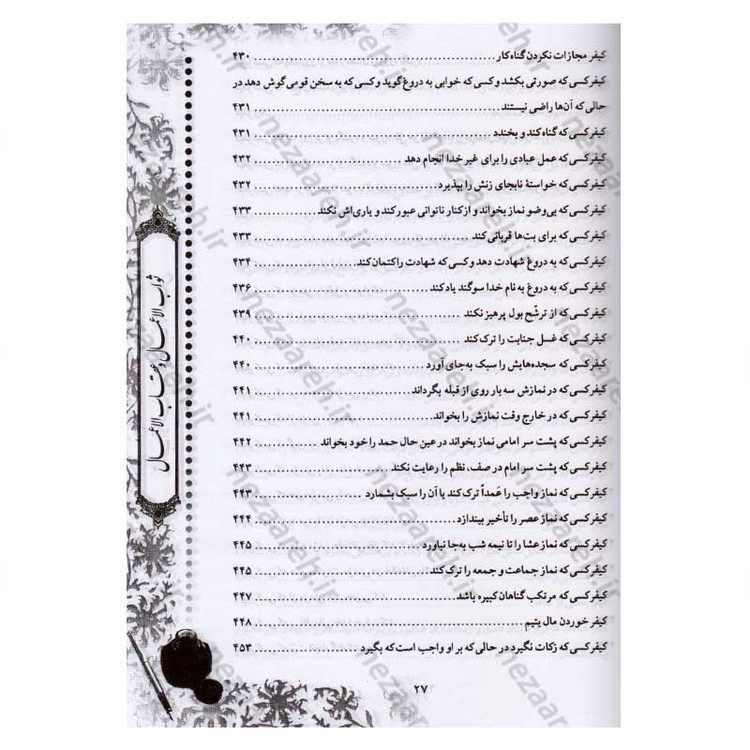 کیفر مجازات نکردن گناه‌کار ........ ۴۳۰
کیفر کسی که صورتی بکشد و کسی که خوابی به دروغ گوید و کسی که به سخن قومی گوش دهد در
حالی که آن‌ها راضی نیستند ........ ۴۳۱
کیفر کسی که گناه کند و بخندد ........ ۴۳۱
کیفر کسی که عمل عبادی را برای غیر خدا انجام دهد ........ ۴۳۲
کیفر کسی که خواستهٔ نابجای زنش را بپذیرد ........ ۴۳۲
کیفر کسی که بی‌وضو نماز بخواند و از کنار ناتوانی عبور کند و یاری‌اش نکند ........ ۴۳۳
کیفر کسی که برای بت‌ها قربانی کند ........ ۴۳۳
کیفر کسی که به دروغ شهادت دهد و کسی که شهادت را کتمان کند ........ ۴۳۴
کیفر کسی که به دروغ به نام خدا سوگند یاد کند ........ ۴۳۶
کیفر کسی که از ترشّح بول پرهیز نکند ........ ۴۳۹
کیفر کسی که غسل جنابت را ترک کند ........ ۴۴۰
کیفر کسی که سجده‌هایش را سبک به‌جای آورد ........ ۴۴۰
کیفر کسی که در نمازش سه بار روی از قبله بگرداند ........ ۴۴۱
کیفر کسی که در خارج وقت نمازش را بخواند ........ ۴۴۱
کیفر کسی که پشت سر امامی نماز بخواند در عین حال حمد را خود بخواند ........ ۴۴۲
کیفر کسی که پشت سر امام در صف، نظم را رعایت نکند ........ ۴۴۳
کیفر کسی که نماز واجب را عَمداً ترک کند یا آن را سبک بشمارد ........ ۴۴۳
کیفر کسی که نماز عصر را تأخیر بیندازد ........ ۴۴۴
کیفر کسی که نماز عشا را تا نیمه شب به‌جا نیاورد ........ ۴۴۵
کیفر کسی که نماز جماعت و جمعه را ترک کند ........ ۴۴۵
کیفر کسی که مرتکب گناهان کبیره باشد ........ ۴۴۷
کیفر خوردن مال یتیم ........ ۴۴۸
کیفر کسی که زکات نگیرد در حالی که بر او واجب است که بگیرد ........ ۴۵۳
۲۷
ثواب الاعمال و عقاب الاعمال
nezaareh.ir